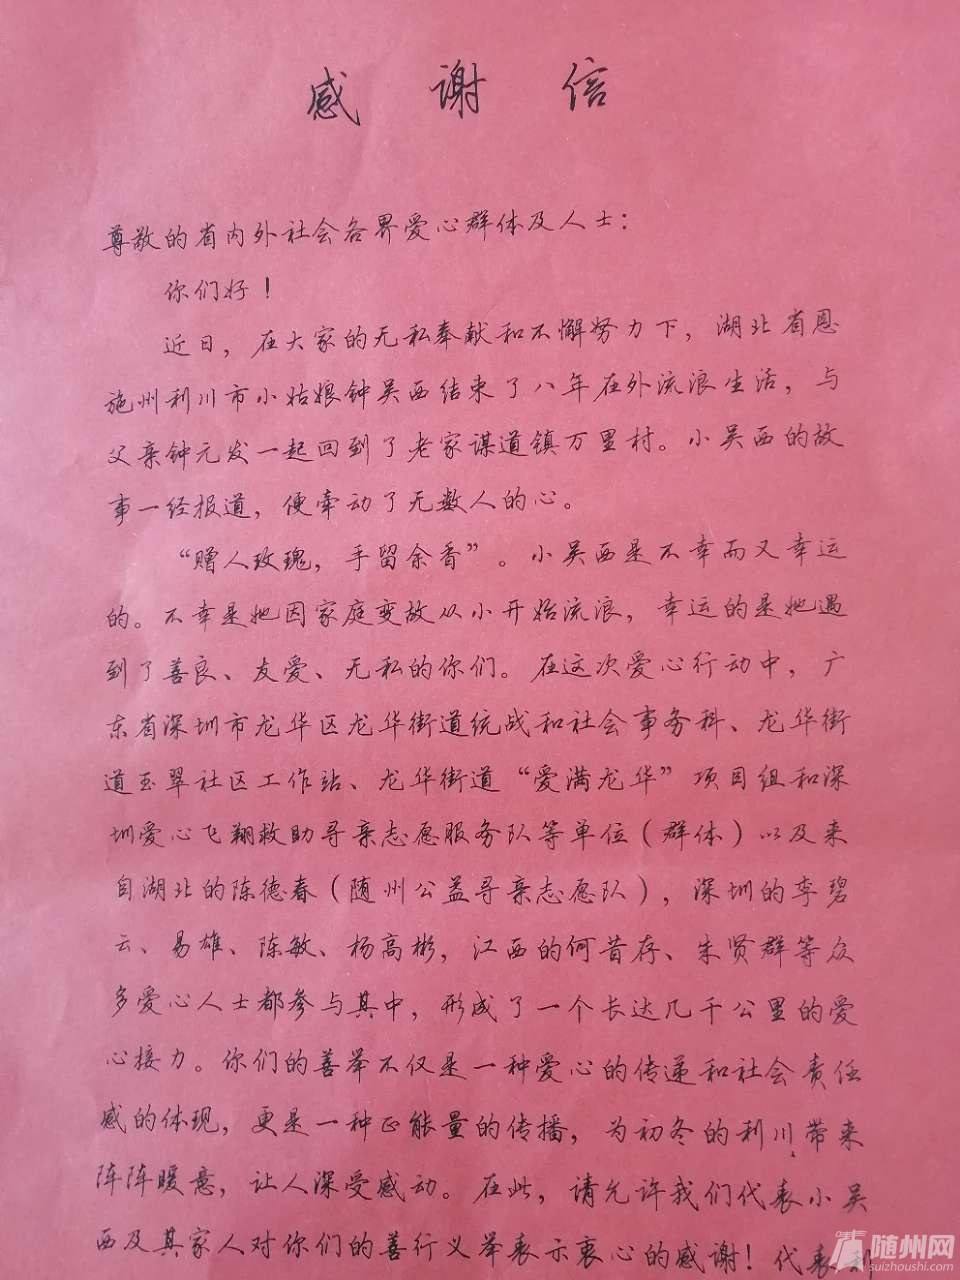 感谢信
尊敬的省内外社会各界爱心群体及人士：
你们好！
近日，在大家的无私奉献和不懈努力下，湖北省恩
施州利川市小姑娘钟吴西结束了八年在外流浪生活，与
父亲钟元发一起回到了老家谋道镇万里村。小吴西的故
事一经报道，便牵动了无数人的心。
“赠人玫瑰，手留余香”。小吴西是不幸而又幸运
的。不幸是她因家庭变故从小开始流浪，幸运的是她遇
到了善良、友爱、无私的你们。在这次爱心行动中，广
东省深圳市龙华区龙华街道统战和社会事务科、龙华街
道玉翠社区工作站、龙华街道“爱满龙华”项目组和深
圳爱心飞翔救助寻亲志愿服务队等单位（群体）以及来
自湖北的陈德春（随州公益寻亲志愿队），深圳的李碧
云、易雄、陈敏、杨高彬，江西的何昔存、朱贤群等众
多爱心人士都参与其中，形成了一个长达几千公里的爱
心接力。你们的善举不仅是一种爱心的传递和社会责任
感的体现，更是一种正能量的传播，为初冬的利川带来
阵阵暖意，让人深受感动。在此，请允许我们代表小吴
西及其家人对你们的善行义举表示衷心的感谢！代表利
随州网
suizhoushi.com